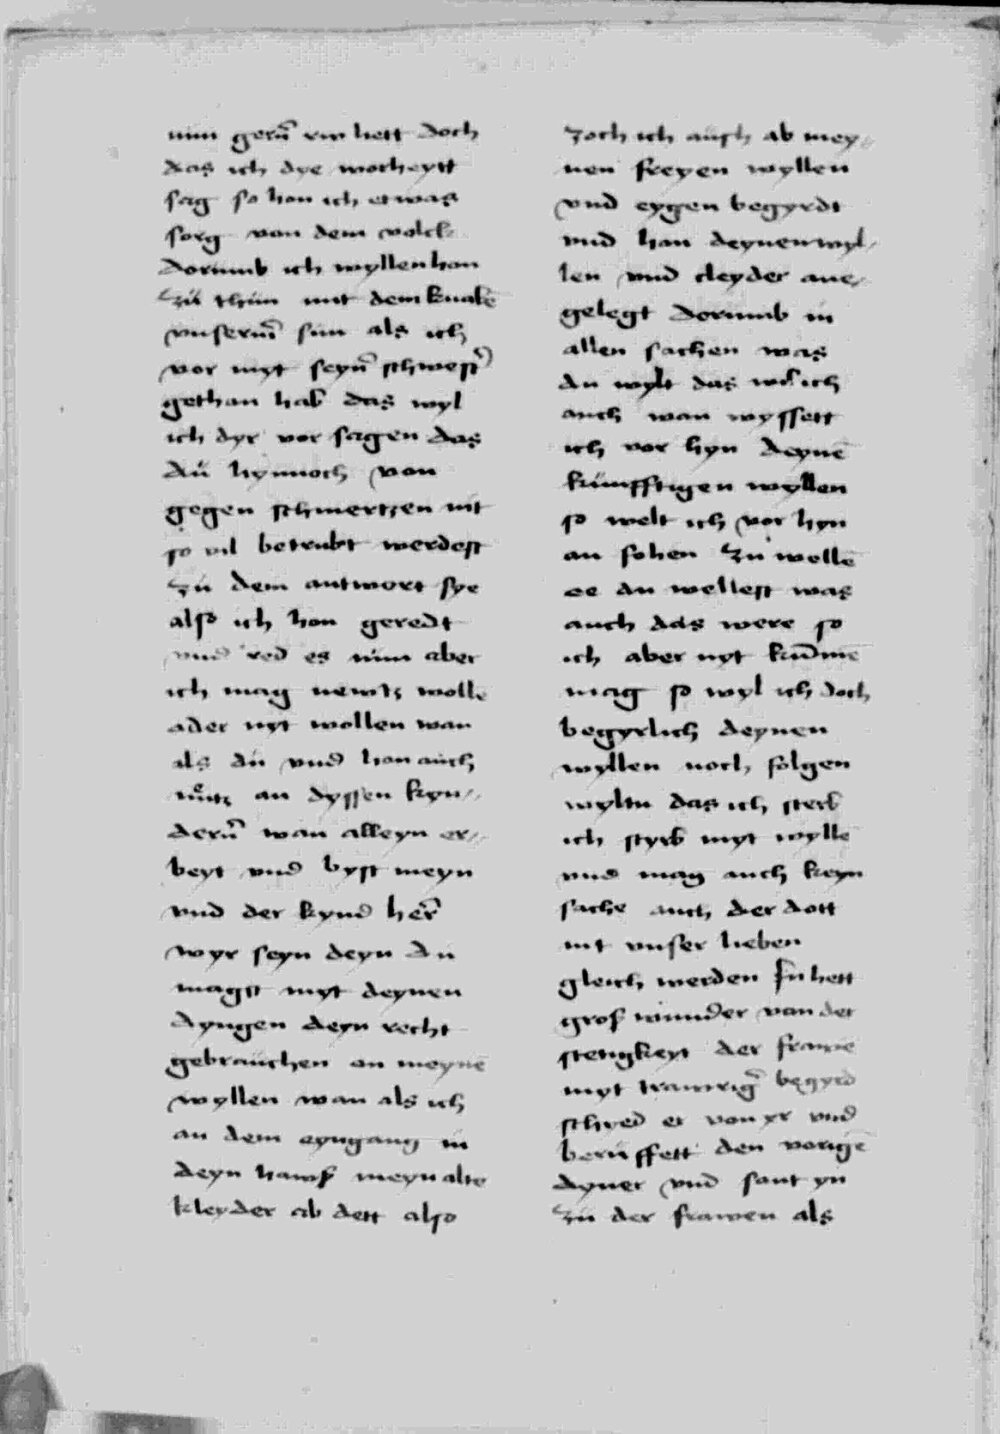 nün gerū̄ rw hett doch
das ich dye worheytt
sag so hon ich etwas
sorg von dem volck
dorumb ich wyllen han
zü thün mit dem knabē
vnserm̄ sün als ich
vor myt seyn̄ schwest̄
gethan hab das wyl
ich dyr vor sagen das
dü hynnoch von
gegen schmertzen nit
so vil betrubt werdest
zü dem antwort sye
also ich hon geredt
vnd red es nün aber
ich mag newtz wolle
ader nyt wollen wan
als dü vnd hon auch
nütz an dyssen kyn-
dern̄ wan alleyn er-
beyt vnd byst meyn
vnd der kynd her̄
wyr seyn deyn du
magst myt deynen
dyngen deyn recht
gebraüchen on meynē
wyllen wan als ich
an dem eyngang in
deyn hawß meyn alte
kleyder ab dett also
zoch ich aüch ab mey-
nen freyen wyllen
vnd eygen begyrdt
vnd han deynen wyl-
len vnd cleyder ane-
gelegt dorumb in
allen sachen was
du wylt das wil ich
auch wan wyssett
ich vor hyn deynē
künfftigen wyllen
so welt ich vor hyn
an fohen zu wellē
ee du wellest was
auch das were so
ich aber nyt
mag so wyl ich doch
begyrlich deynen
wyllen noch folgen
wyltu das ich sterb
ich styrb myt wyllē
vnd mag auch keyn
sache auch der dott
nit vnser lieben
gleich werden hett
groß wunder van der
stetigkeyt der frawē
myt trawriḡ begyrd
schyed er von yr vnd
berüffett den vorigē
dyner vnd sant yn
zü der frawen als